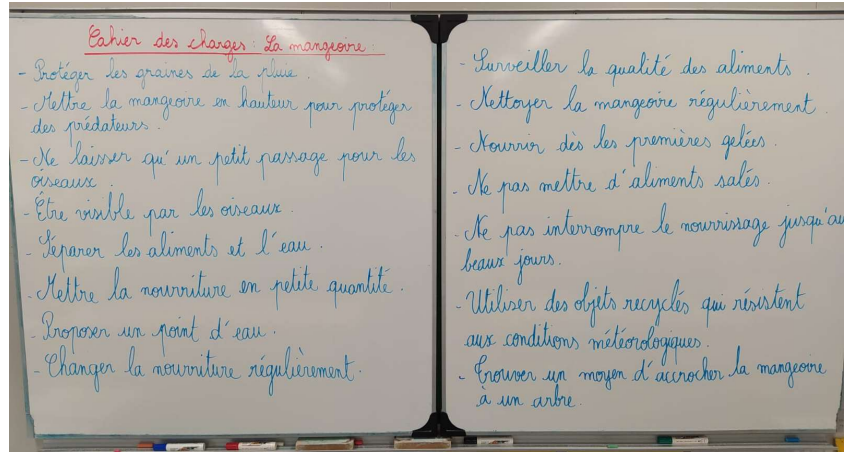 Cahier des charges : La mangeoire :
- Protéger les graines de la pluie.
- Mettre la mangeoire en hauteur pour protéger
des prédateurs.
- Ne laisser qu'un petit passage pour les
oiseaux.
- Être visible par les oiseaux.
- Séparer les aliments et l'eau.
- Mettre la nourriture en petite quantité.
- Proposer un point d'eau.
- Changer la nourriture régulièrement.
- Surveiller la qualité des aliments.
- Nettoyer la mangeoire régulièrement.
- Nourrir dès les premières gelées.
- Ne pas mettre d'aliments salés.
- Ne pas interrompre le nourrissage jusqu'au
beaux jours.
- Utiliser des objets recyclés qui résistent
aux conditions météorologiques.
- Trouver un moyen d'accrocher la mangeoire
à un arbre.